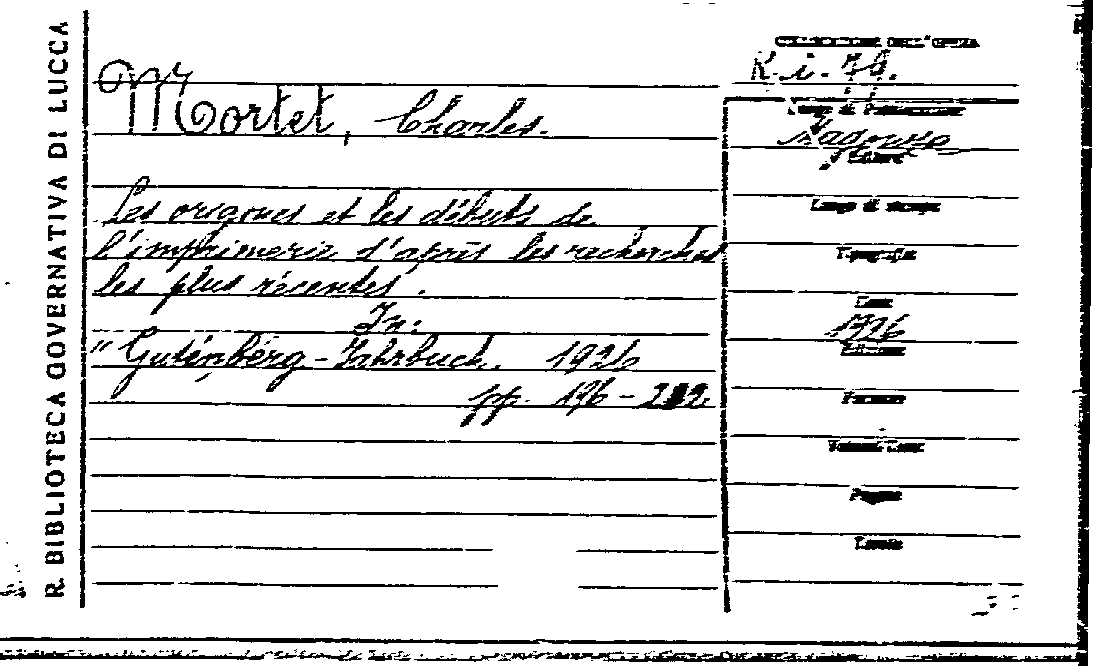 R. BIBLIOTECA GOVERNATIVA DI LUCCA
Mortet, Charles.
Les origines et les débuts de
l'imprimerie d'après les recherches
les plus récentes.
In:
"Gutenberg-Jahrbuch. 1926
pp. 196 -
COLLOCAZIONE DELL'OPERA
K. i. 79.
Luogo di Pubblicazione
Editore
Luogo di stampa
Tipografia
Data
1926
Edizione
Formato
Volumi
Pagine
Tavole